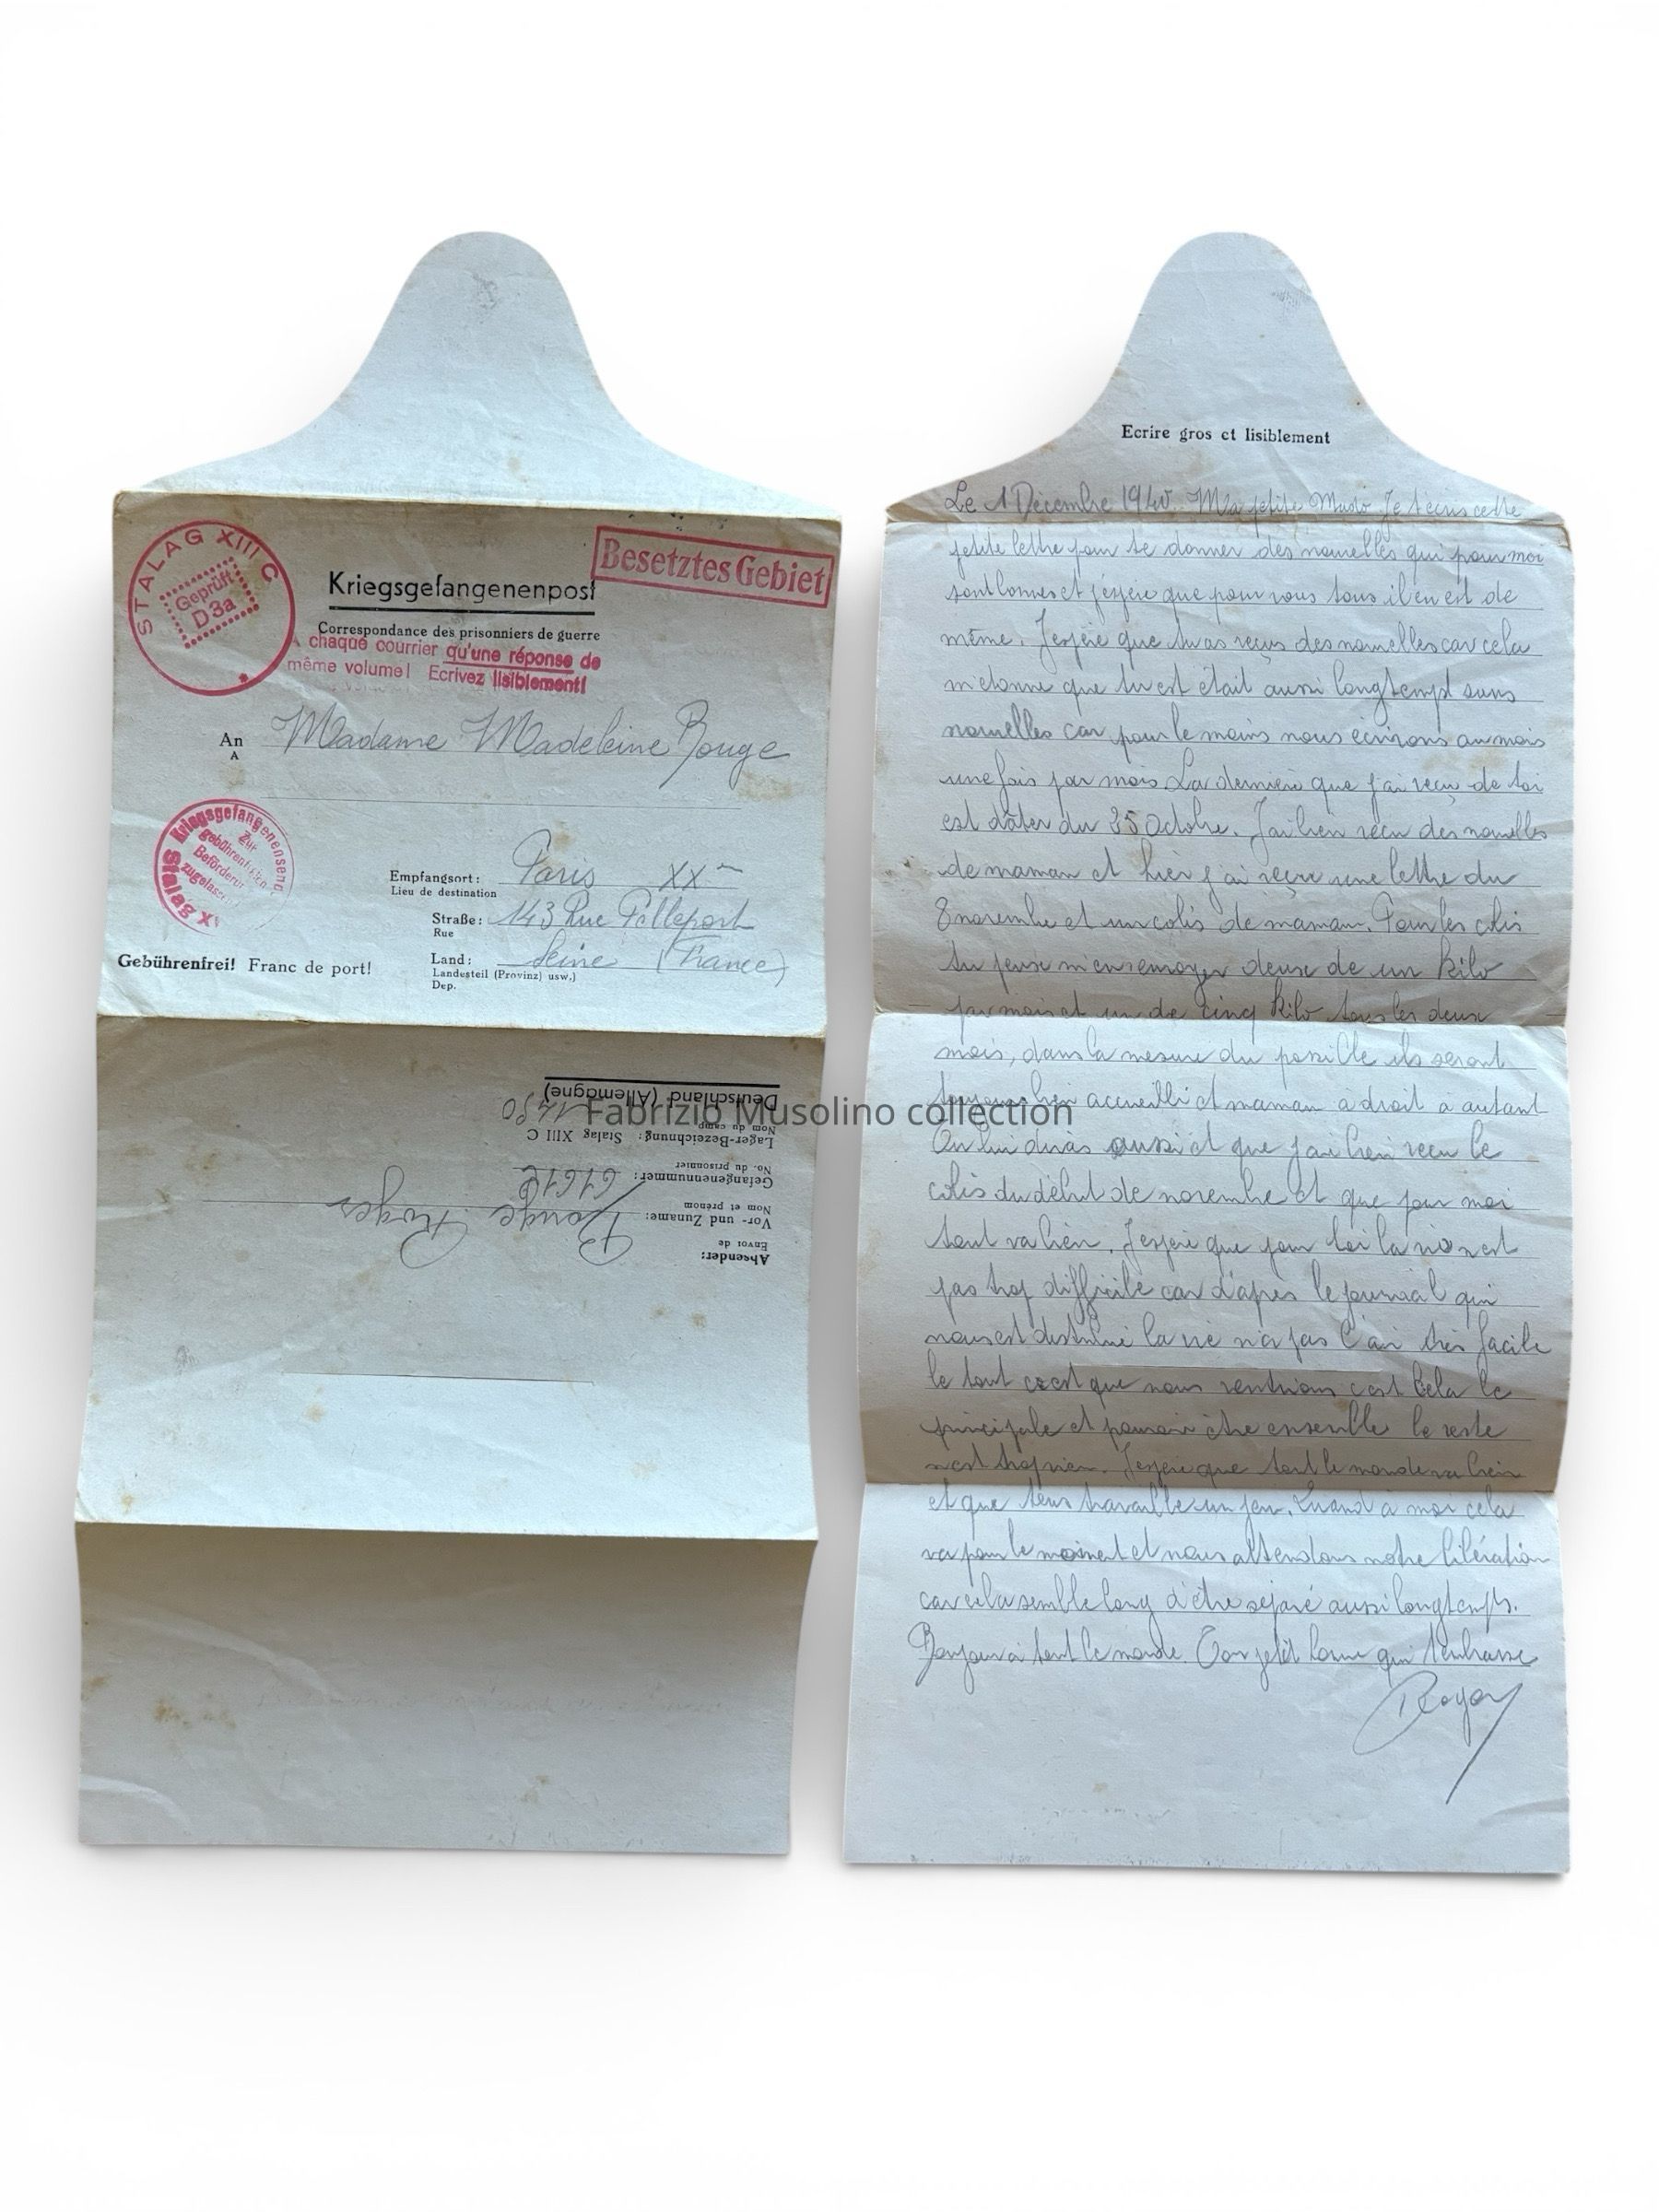 STALAG XIII C
Geprüft
D3a
Besetztes Gebiet
Kriegsgefangenenpost
Correspondance des prisonniers de guerre
A chaque courrier qu'une réponse de
même volume! Ecrivez lisiblement!
An
A
Madame Madeleine Rouge
Kriegsgefangenensend.
Zur
gebührenfreien
Beförderun
zugelassen
Stalag X
Empfangsort: Paris XX
Lieu de destination
Straße: 143 Rue Pelleport
Rue
Land: Seine (France)
Landesteil (Provinz) usw.)
Dep.
Gebührenfrei! Franc de port!
Absender:
Envoi de
Vor- und Zuname: Rouge Roger
Nom et prénom
Gefangenennummer:
No. du prisonnier
Lager-Bezeichnung: Stalag XIII C
Nom du camp
Deutschland (Allemagne)
Fabrizio Musolino collection
Ecrire gros et lisiblement
Le 1 Décembre 1940. Ma petite Je cette
petite lettre pour te donner des nouvelles qui pour moi
sont bonnes et j'éspère que pour vous tous il en est de
même. J'espère que tu as reçus des nouvelles car cela
m'étonne que tu est était aussi longtemps sans
nouvelles car pour le moins nous écrivons au mois
une fois par mois La dernière que j'ai reçu de toi
est dâter du 25 Octobre. J'ai bien reçu des nouvelles
de maman et hier j'ai reçu une lettre du
8 novembre et un colis de maman. Pour les colis
tu peux deux de un kilo
par mois et un de cinq kilo tous les deux
mois, dans la mesure du possible ils seront
toujours bien accueilli et maman à droit a autant
lui diras aussi et que j'ai bien recu le
colis du début de novembre et que pour moi
tout va bien. J'espère que pour toi la vie n'est
pas trop difficile car d'après le journal qui
nous est distribué la vie n'a pas l'air très facile
le tout c'est que nous rentrions c'est cela le
principale et pouvoir être ensemble le reste
n'est trop rien. J'espère que tout le monde va bien
et que tous travaille un peu. Quand à moi cela
va pour le moment et nous attendons notre libération
car cela semble long d'être séparé aussi longtemps.
Bonjour à tout le monde. Ton petit homme qui t'embrasse
Roger